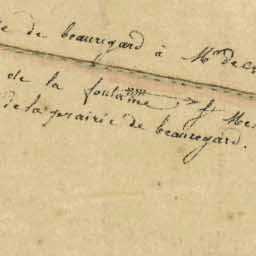 de beauregard à Mr de
de la fontaine
de la prairie de beauregard.